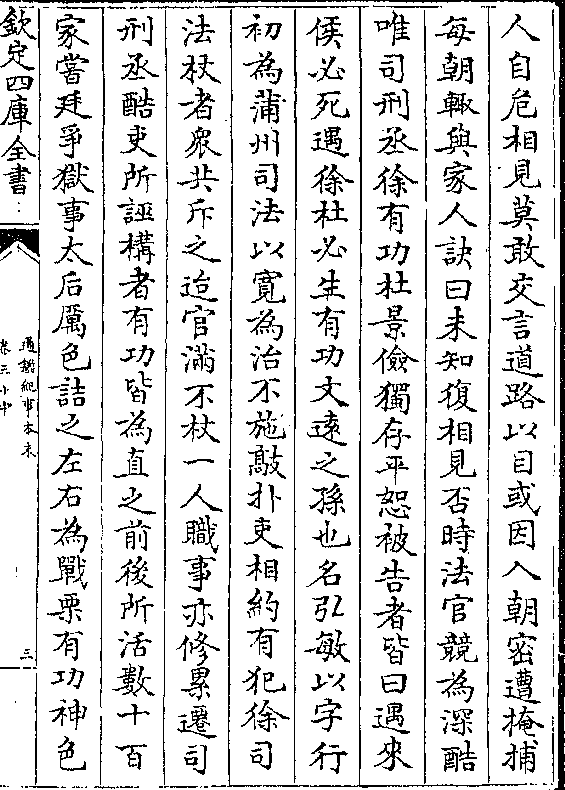 人自危相見莫敢交言道路以目或因入朝密遭掩捕
每朝輙與家人訣曰未知復相見否時法官競為深酷
唯司刑丞徐有功杜景儉獨存平恕被告者皆曰遇來
侯必死遇徐杜必生有功文遠之孫也名弘敏以字行
初為蒲州司法以寛為治不施敲扑吏相約有犯徐司
法杖者衆共斥之迨官滿不杖一人職事亦修累遷司
刑丞酷吏所誣構者有功皆為直之前後所活數十百
家嘗廷爭獄事太后厲色詰之左右為戰栗有功神色
欽定四庫全書
通鑑紀事本末
卷三十中
三